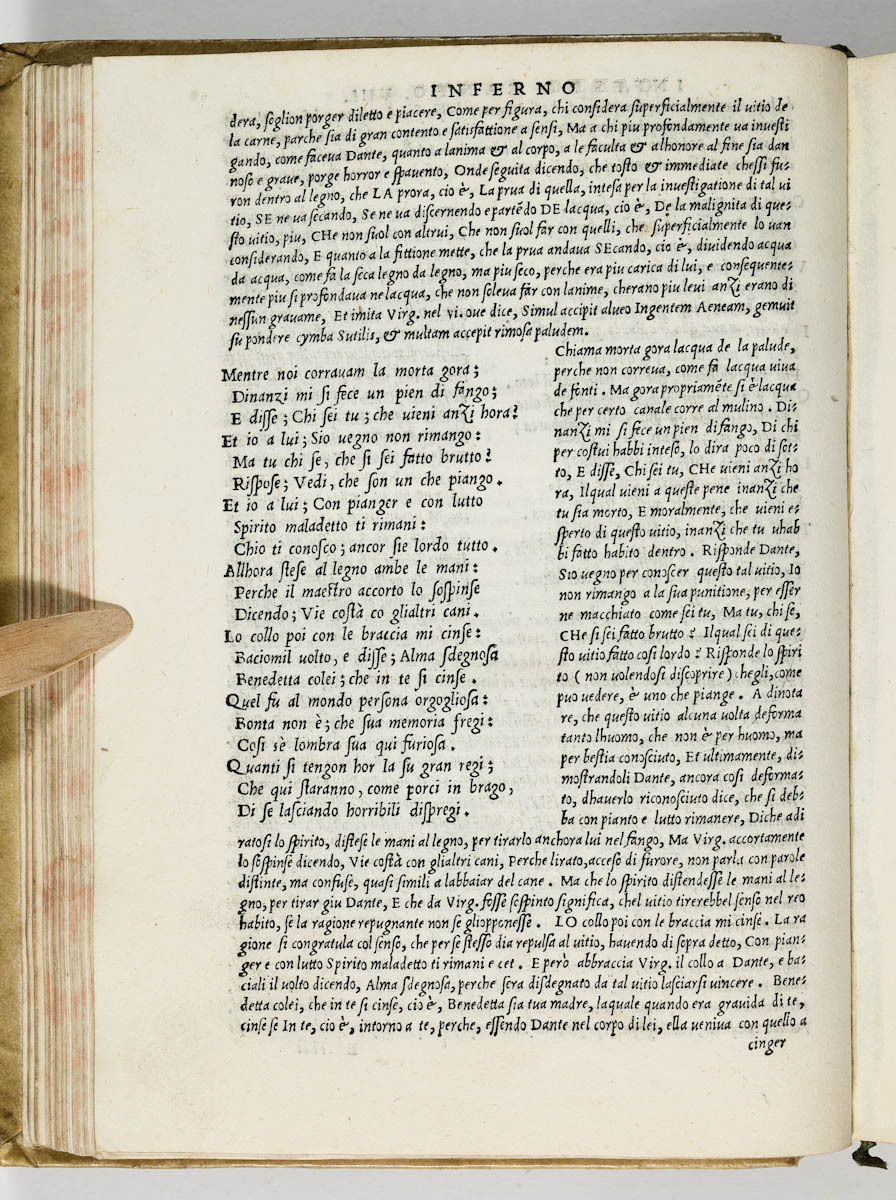 INFERNO
dera, soglion porger diletto e piacere, Come per figura, chi considera superficialmente il uitio de
la carne, parche sia di gran contento e satisfattione a sensi, Ma a chi piu profondamente ua inuesti
gando, come faceua Dante, quanto a lanima & al corpo, a le faculta & alhonore al fine sia dan
noso e graue, porge horror e spauento, Onde seguita dicendo, che tosto & immediate chessi fu-
ron dentro al legno, che LA prora, cio è, La prua di quella, intesa per la inuestigatione di tal ui
tio, SE ne ua secando, Se ne ua discernendo e partẽdo DE lacqua, cio è, De la malignita di que-
sto uitio, piu, CHe non suol con altrui, Che non suol far con quelli, che superficialmente lo uan
considerando, E quanto a la fittione mette, che la prua andaua SEcando, cio è, diuidendo acqua
da acqua, come fa la seca legno da legno, ma piu seco, perche era piu carica di lui, e consequente-
mente piu si profondaua ne lacqua, che non soleua far con lanime, cherano piu leui anzi erano di
nessun grauame, Et imita Virg. nel vi. oue dice, Simul accipit alueo Ingentem Aeneam, gemuit
su pondere cymba Sutilis, & multam accepit rimosa paludem.
Mentre noi corrauam la morta gora;
Dinanzi mi si fece un pien di fango;
E disse; Chi sei tu; che uieni anzi hora?
Et io a lui; S'io uegno non rimango:
Ma tu chi se, che si sei fatto brutto?
Rispose; Vedi, che son un che piango.
Et io a lui; Con pianger e con lutto
Spirito maladetto ti rimani:
Chio ti conosco; ancor sie lordo tutto.
Allhora stese al legno ambe le mani:
Perche il maestro accorto lo sospinse
Dicendo; Vie costà co glialtri cani.
Lo collo poi con le braccia mi cinse:
Baciomil uolto, e disse; Alma sdegnosa
Benedetta colei; che in te si cinse.
Quel fu al mondo persona orgogliosa:
Bonta non è; che sua memoria fregi:
Cosi sè lombra sua qui furiosa.
Quanti si tengon hor la su gran regi;
Che qui staranno, come porci in brago,
Di se lasciando horribili dispregi.
Chiama morta gora lacqua de la palude,
perche non correua, come fa lacqua uiua
de fonti. Ma gora propriamẽte si è lacqua
che per certo canale corre al mulino. Di-
nanzi mi si fece un pien di fango, Di chi
per costui habbi inteso, lo dira poco di sot-
to, E disse, Chi sei tu, CHe uieni anzi ho
ra, Ilqual uieni a queste pene inanzi che
tu sia morto, E moralmente, che uieni e-
sperto di questo uitio, inanzi che tu uhab
bi fatto habito dentro. Risponde Dante,
Sio uegno per conoscer questo tal uitio, Io
non rimango a la sua punitione, per esser
ne macchiato come sei tu, Ma tu, chi se,
CHe si sei fatto brutto? Ilqual sei di que-
sto uitio fatto cosi lordo? Risponde lo spiri
to (non uolendosi discoprire) chegli, come
puo uedere, è uno che piange. A dinota
re, che questo uitio alcuna uolta deforma
tanto lhuomo, che non è per huomo, ma
per bestia conosciuto, Et ultimamente, di-
mostrandoli Dante, ancora cosi deforma-
to, dhauerlo riconosciuto dice, che si deb-
ba con pianto e lutto rimanere, Diche adi
ratosi lo spirito, distese le mani al legno, per tirarlo anchora lui nel fango, Ma Virg. accortamente
lo sospinse dicendo, Vie costà con glialtri cani, Perche lirato, acceso di furore, non parla con parole
distinte, ma confuse, quasi simili a labbaiar del cane. Ma che lo spirito distendesse le mani al le-
gno, per tirar giu Dante, E che da Virg. fosse sospinto significa, chel uitio tirerebbel senso nel reo
habito, se la ragione repugnante non se gliopponesse. LO collo poi con le braccia mi cinse. La ra
gione si congratula col senso, che per se stesso dia repulsa al uitio, hauendo di sopra detto, Con pian-
ger e con lutto Spirito maladetto ti rimani e cet. E però abbraccia Virg. il collo a Dante, e ba-
ciali il uolto dicendo, Alma sdegnosa, perche sera disdegnato da tal uitio lasciarsi uincere. Bene-
detta colei, che in te si cinse, cio è, Benedetta sia tua madre, laquale quando era grauida di te,
cinse se In te, cio è, intorno a te, perche, essendo Dante nel corpo di lei, ella ueniua con quello a
cinger